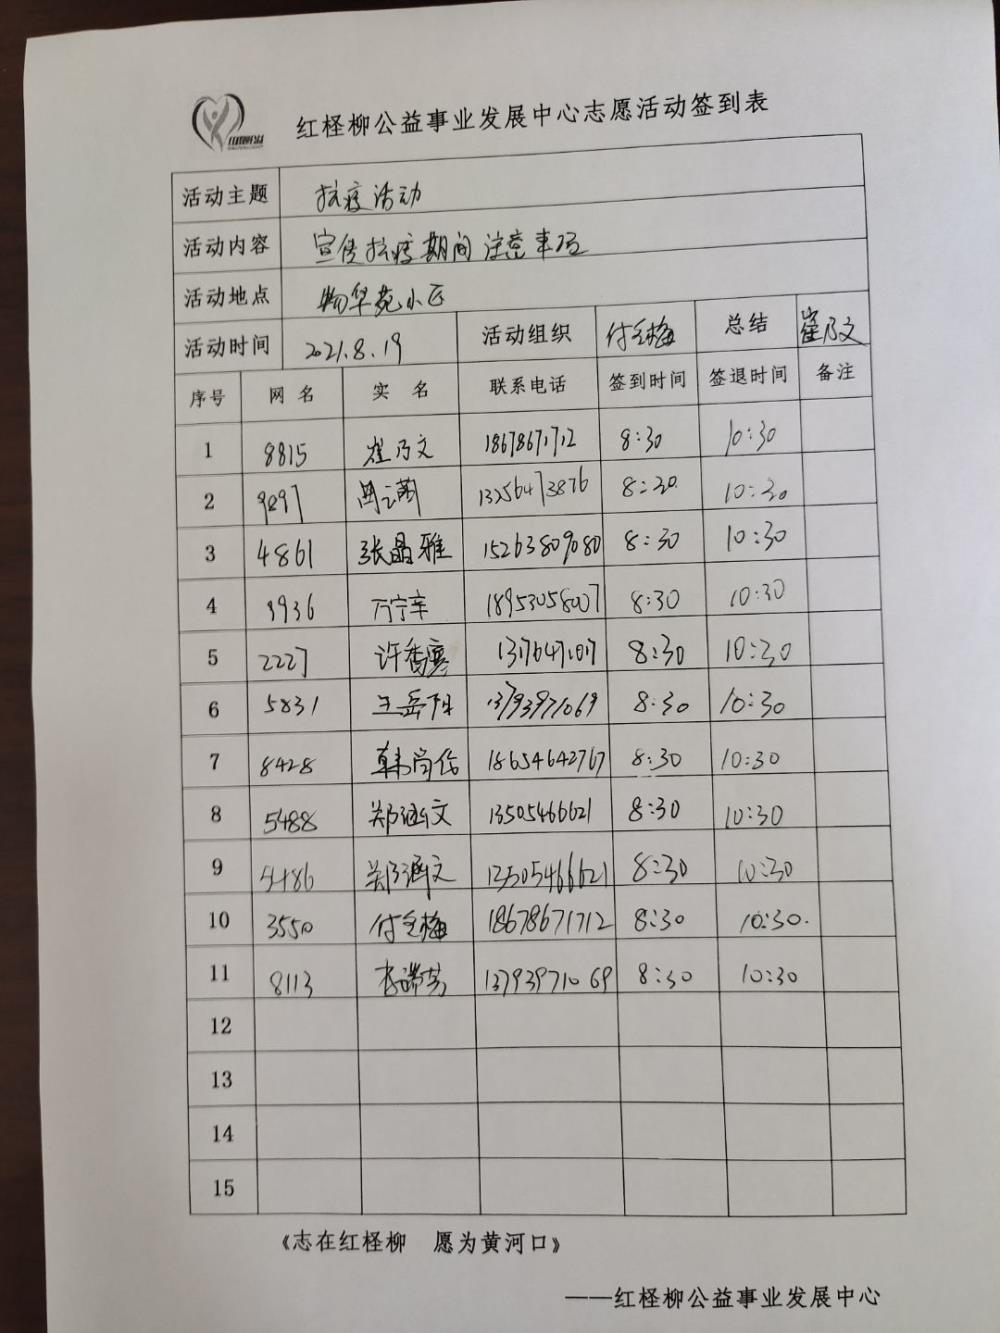 红柽柳公益事业发展中心志愿活动签到表
活动主题 抗疫活动
活动内容 宣传抗疫期间注意事项
活动地点 物华苑小区
活动时间 2021.8.19 活动组织 付梅 总结 崔乃文
序号 网名 实名 联系电话 签到时间 签退时间 备注
1 8815 崔乃文 18678671712 8:30 10:30
2 9297 周 13256473876 8:30 10:30
3 4861 张晶雅 15263809080 8:30 10:30
4 3936 万宁 18953058007 8:30 10:30
5 2227 许 8:30 10:30
6 5831 王岳阳 13793971069 8:30 10:30
7 8428 韩尚 18654642767 8:30 10:30
8 5488 郑涵文 13505466621 8:30 10:30
9 5486 郑涵文 13505466621 8:30 10:30
10 3550 付梅 18678671712 8:30 10:30.
11 8113 李芳 13793971069 8:30 10:30
12
13
14
15
《志在红柽柳 愿为黄河口》
——红柽柳公益事业发展中心